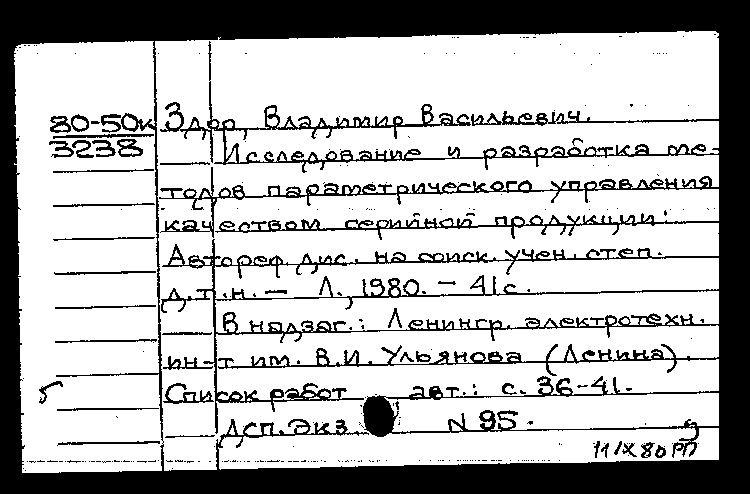 80-50к Здор, Владимир Васильевич.
3238 Исследование и разработка ме-
тодов параметрического управления
качеством серийной продукции:
Автореф. дис. на соиск. учен. степ.
д.т.н. — Л., 1980. - 41с.
В надзаг.: Ленингр. электротехн.
ин-т им. В.И. Ульянова (Ленина).
Список работ авт.: с. 36-41.
Дсп. Экз. N 95.
11/IX 80 РП